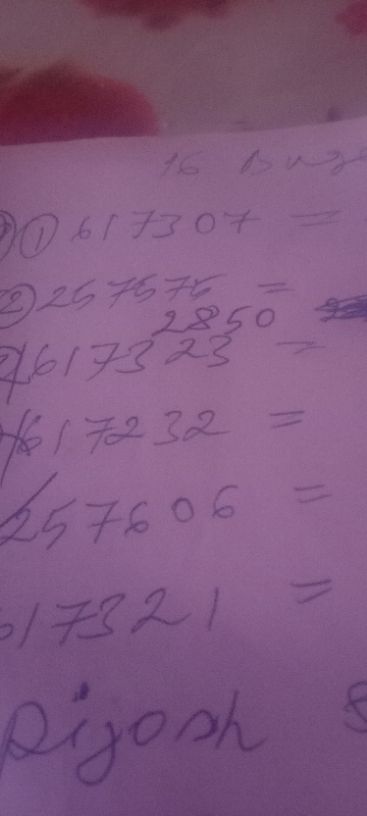 16
① 617307 =
② 257575 =
2850
617323 =
617232 =
257606 =
617321 =